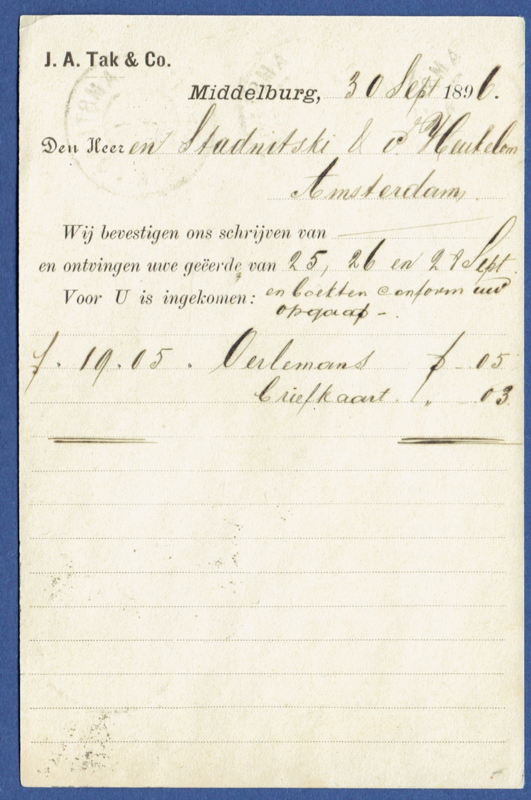 J. A. Tak & Co.
Middelburg, 30 Sept 1896.
Den Heeren Stadnitski & v. Heukelom
Amsterdam.
Wij bevestigen ons schrijven van
en ontvingen uwe geëerde van 25, 26 en 28 Sept.
Voor U is ingekomen: en boekten conform uw
opgaaf -.
f. 19.05. Oerlemans f -.05
briefkaart. " -.03